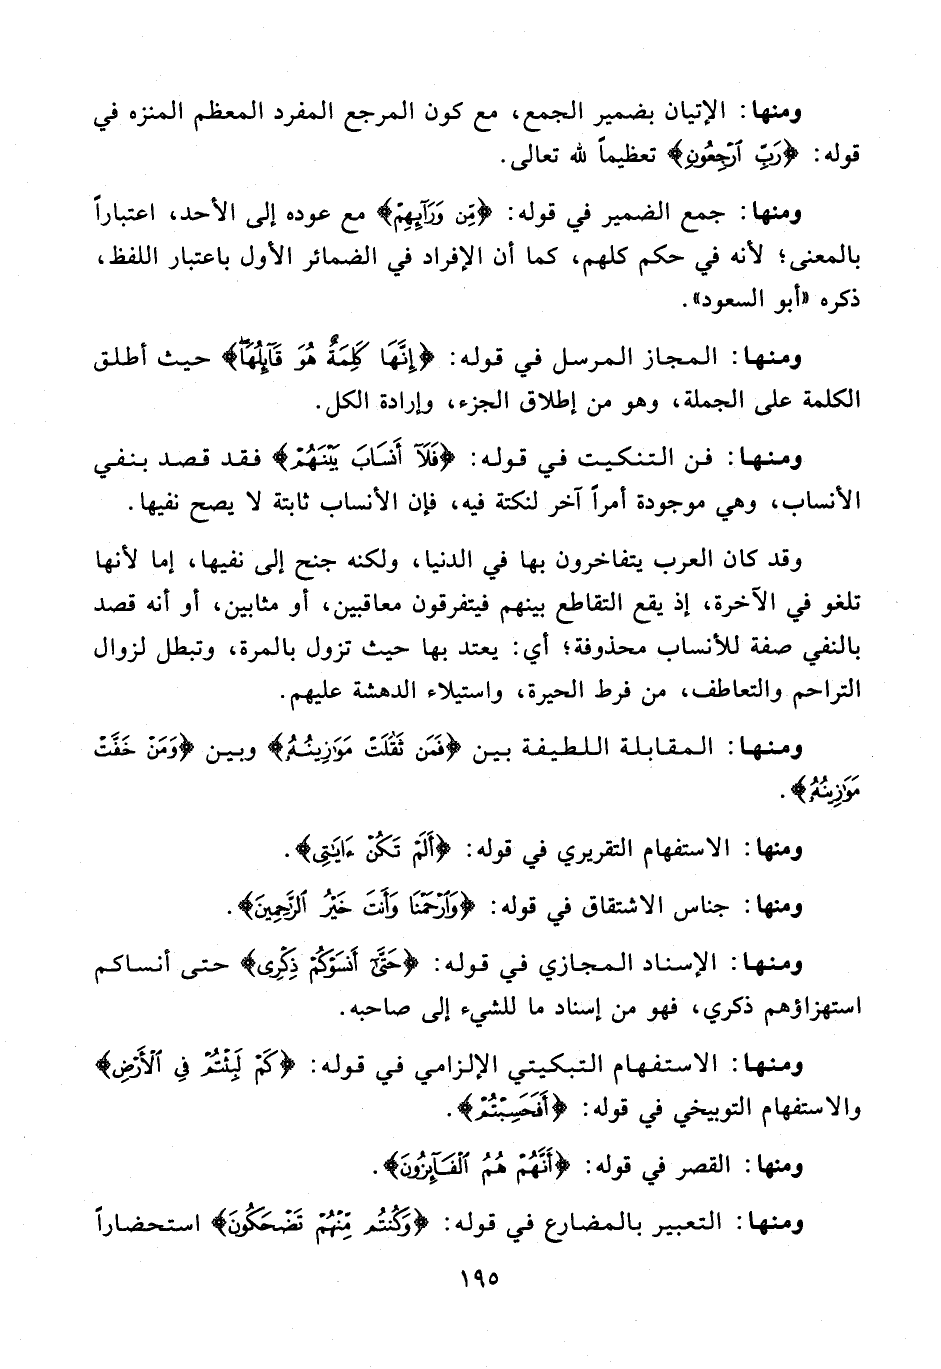 ومنها: الإتيان بضمير الجمع، مع كون المرجع المفرد المعظم المنزه في
قوله: ﴿رَبِّ ٱرْجِعُونِ﴾ تعظيماً لله تعالى.
ومنها: جمع الضمير في قوله: ﴿مِن وَرَآئِهِمْ﴾ مع عوده إلى الأحد، اعتباراً
بالمعنى؛ لأنه في حكم كلهم، كما أن الإفراد في الضمائر الأول باعتبار اللفظ،
ذكره «أبو السعود».
ومنها: المجاز المرسل في قوله: ﴿إِنَّهَا كَلِمَةٌ هُوَ قَآئِلُهَا﴾ حيث أطلق
الكلمة على الجملة، وهو من إطلاق الجزء، وإرادة الكل.
ومنها: فن التنكيت في قوله: ﴿فَلَآ أَنسَابَ بَيْنَهُمْ﴾ فقد قصد بنفي
الأنساب، وهي موجودة أمراً آخر لنكتة فيه، فإن الأنساب ثابتة لا يصح نفيها.
وقد كان العرب يتفاخرون بها في الدنيا، ولكنه جنح إلى نفيها، إما لأنها
تلغو في الآخرة، إذ يقع التقاطع بينهم فيتفرقون معاقبين، أو مثابين، أو أنه قصد
بالنفي صفة للأنساب محذوفة؛ أي: يعتد بها حيث تزول بالمرة، وتبطل لزوال
التراحم والتعاطف، من فرط الحيرة، واستيلاء الدهشة عليهم.
ومنها: المقابلة اللطيفة بين ﴿فَمَن ثَقُلَتْ مَوَٰزِينُهُۥ﴾ وبين ﴿وَمَنْ خَفَّتْ
مَوَٰزِينُهُۥ﴾.
ومنها: الاستفهام التقريري في قوله: ﴿أَلَمْ تَكُنْ ءَايَٰتِى﴾.
ومنها: جناس الاشتقاق في قوله: ﴿وَٱرْحَمْنَا وَأَنتَ خَيْرُ ٱلرَّٰحِمِينَ﴾.
ومنها: الإسناد المجازي في قوله: ﴿حَتَّىٰٓ أَنسَوْكُمْ ذِكْرِى﴾ حتى أنساكم
استهزاؤهم ذكري، فهو من إسناد ما للشيء إلى صاحبه.
ومنها: الاستفهام التبكيتي الإلزامي في قوله: ﴿كَمْ لَبِثْتُمْ فِى ٱلْأَرْضِ﴾
والاستفهام التوبيخي في قوله: ﴿أَفَحَسِبْتُمْ﴾.
ومنها: القصر في قوله: ﴿أَنَّهُمْ هُمُ ٱلْفَآئِزُونَ﴾.
ومنها: التعبير بالمضارع في قوله: ﴿وَكُنتُم مِّنْهُمْ تَضْحَكُونَ﴾ استحضاراً
١٩٥